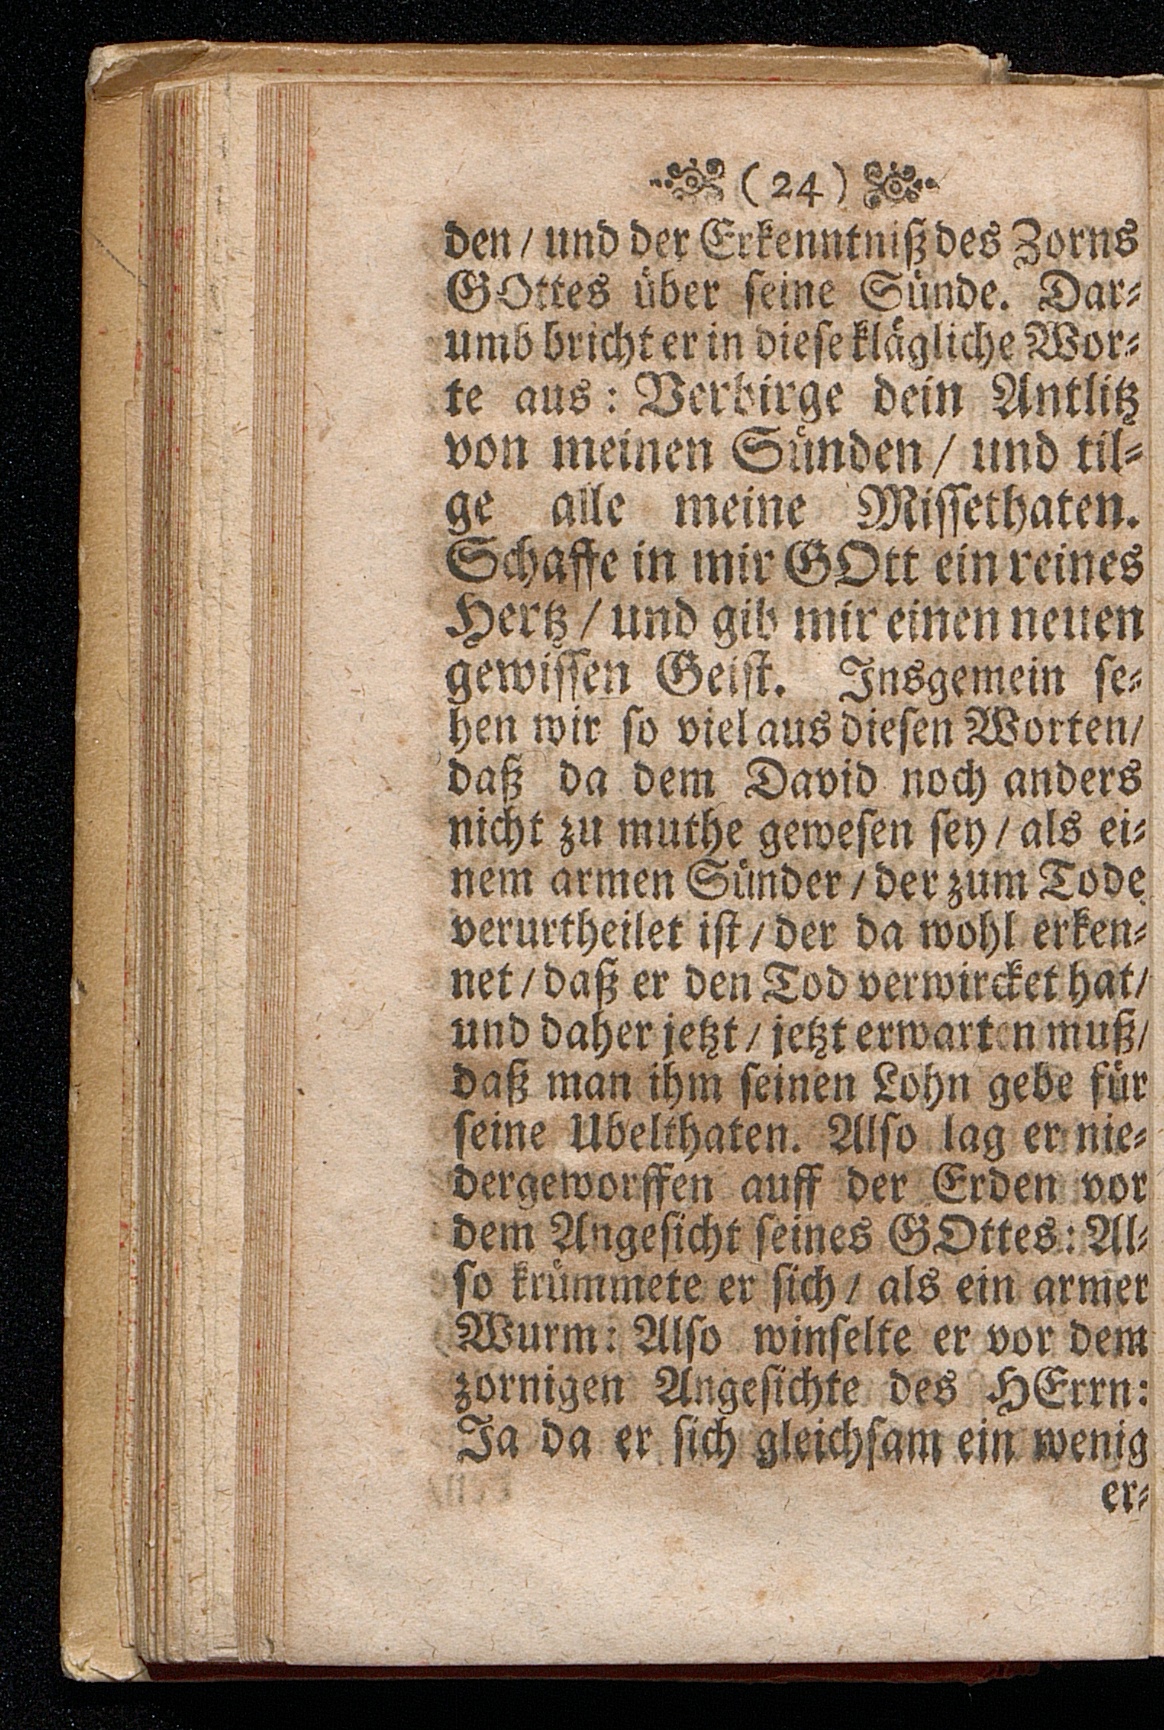 (24)
den / und der Erkenntniß des Zorns
GOttes über seine Sünde. Dar-
umb bricht er in diese klägliche Wor-
te aus: Verbirge dein Antlitz
von meinen Sünden / und til-
ge alle meine Missethaten.
Schaffe in mir GOtt ein reines
Hertz / und gib mir einen neuen
gewissen Geist. Insgemein se-
hen wir so viel aus diesen Worten/
daß da dem David noch anders
nicht zu muthe gewesen sey / als ei-
nem armen Sünder / der zum Tode
verurtheilet ist / der da wohl erken-
net / daß er den Tod verwircket hat/
und daher jetzt / jetzt erwarten muß/
daß man ihm seinen Lohn gebe für
seine Ubelthaten. Also lag er nie-
dergeworffen auff der Erden vor
dem Angesicht seines GOttes: Al-
so krümmete er sich / als ein armer
Wurm: Also winselte er vor dem
zornigen Angesichte des HErrn:
Ja da er sich gleichsam ein wenig
er-